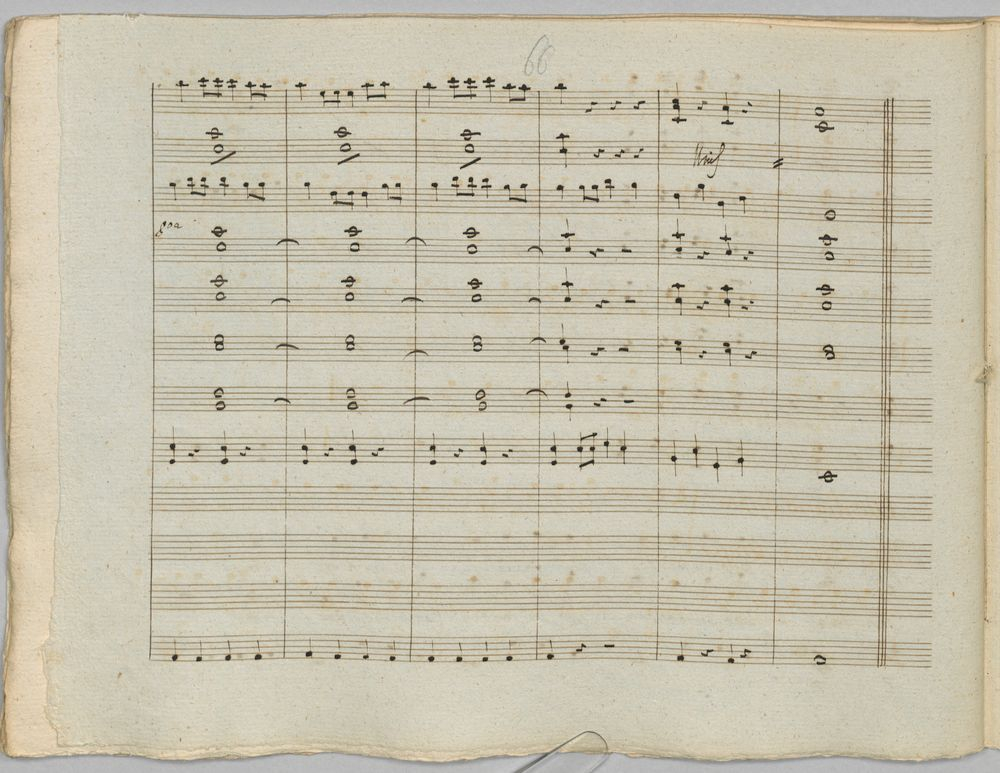 66
8va
Unis